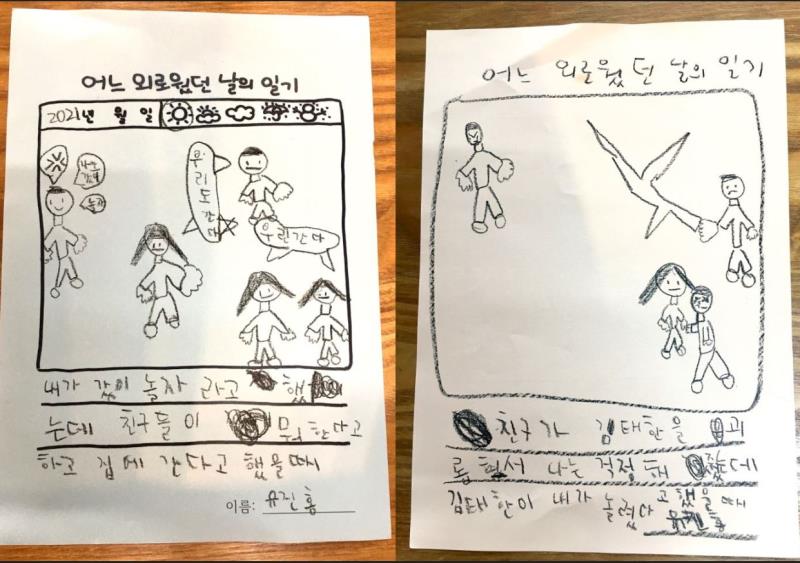 어느 외로웠던 날의 일기
2021년 월 일
우리도 간다
우린 간다
놀자
내가 같이 놀자 라고 했
는데 친구들이 뭐 한다고
하고 집에 간다고 했을때
이름: 유진홍
어느 외로웠던 날의 일기
친구가 김태한을 괴
롭혀서 나는 걱정해 줬는데
김태한이 내가 놀렸다고 했을때
유진홍